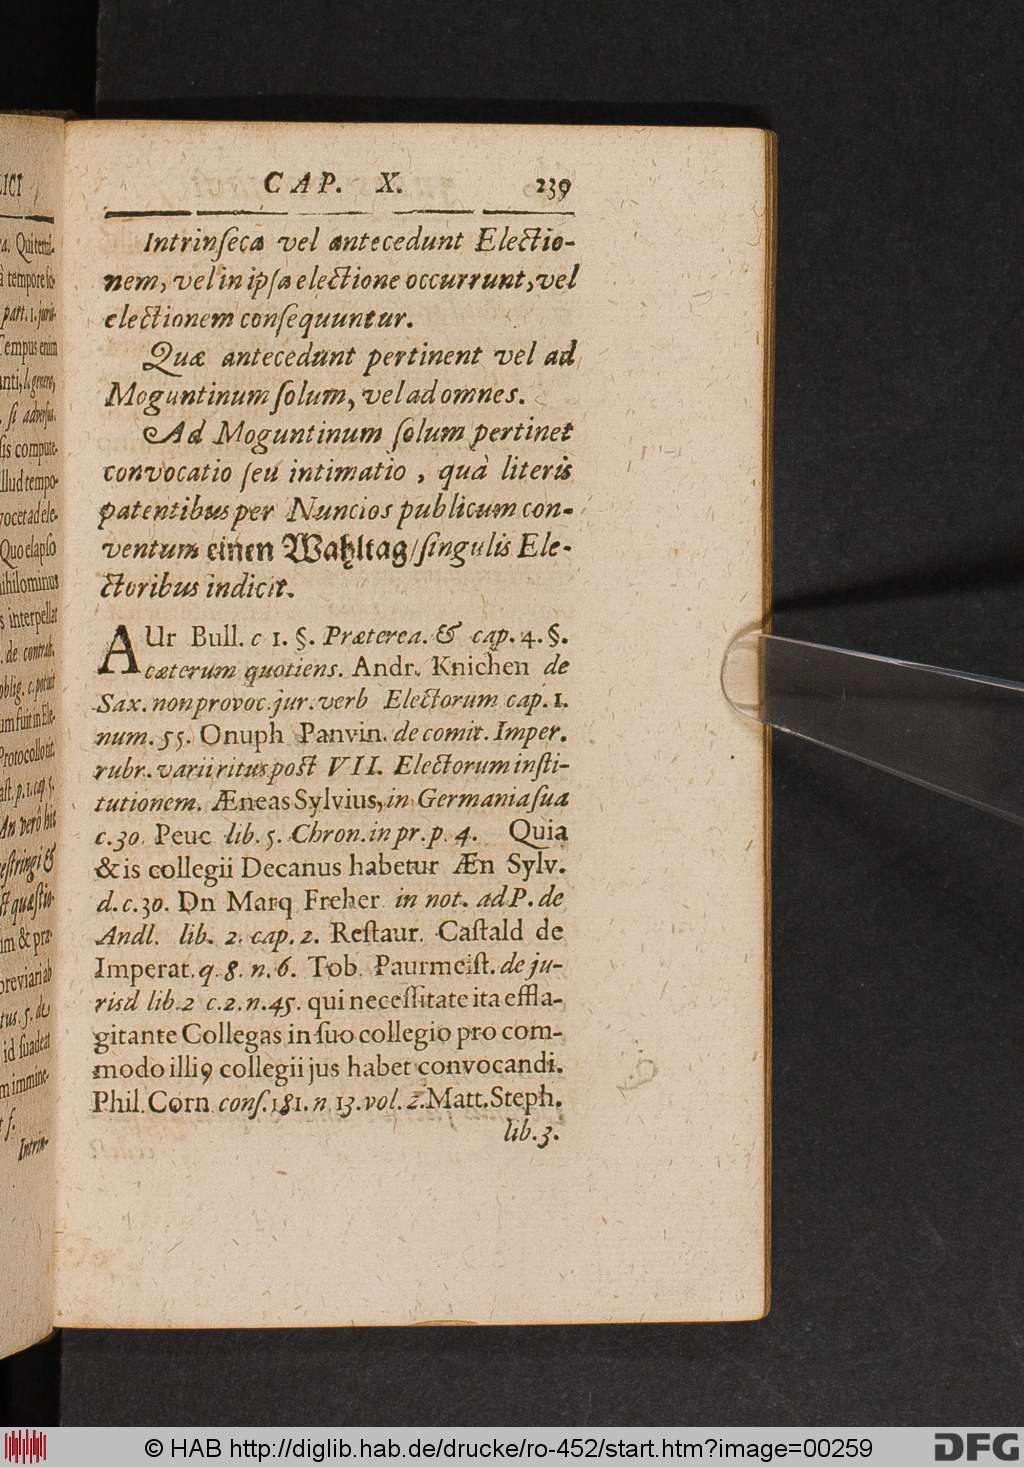 LICI
a. Qui
à tempore
part. 1.
Tempus enim
si
compute-
Illud tempo-
vocet ad ele-
Quo elapso
nihilominus
interpellat
de
oblig. c.
fuit in Ele-
p. 1. cap. 5.
An verò
& præ-
5. de
id suadeat
Intrin-
CAP. X. 239
Intrinſeca vel antecedunt Electio-
nem, vel in ipſa electione occurrunt, vel
electionem conſequuntur.
Quæ antecedunt pertinent vel ad
Moguntinum ſolum, vel ad omnes.
Ad Moguntinum ſolum pertinet
convocatio ſeu intimatio, quâ literis
patentibus per Nuncios publicum con-
ventum einen Wahltag/ ſingulis Ele-
ctoribus indicit.
AUr Bull. c 1. §. Præterea. & cap. 4. §.
cæterum quotiens. Andr. Knichen de
Sax. non provoc. jur. verb Electorum cap. 1.
num. 55. Onuph Panvin. de comit. Imper.
rubr. varii ritus post VII. Electorum inſti-
tutionem. Æneas Sylvius, in Germania ſua
c. 30. Peuc lib. 5. Chron. in pr. p. 4. Quia
& is collegii Decanus habetur Æn Sylv.
d. c. 30. Dn Marq Freher in not. ad P. de
Andl. lib. 2. cap. 2. Reſtaur. Caſtald de
Imperat. q. 8. n. 6. Tob. Paurmeiſt. de ju-
risd lib. 2 c. 2. n. 45. qui neceſſitate ita effla-
gitante Collegas in ſuo collegio pro com-
modo illiꝰ collegii jus habet convocandi.
Phil. Corn conſ. 181. n 13. vol. 2. Matt. Steph.
lib. 3.
© HAB http://diglib.hab.de/drucke/ro-452/start.htm?image=00259
DFG